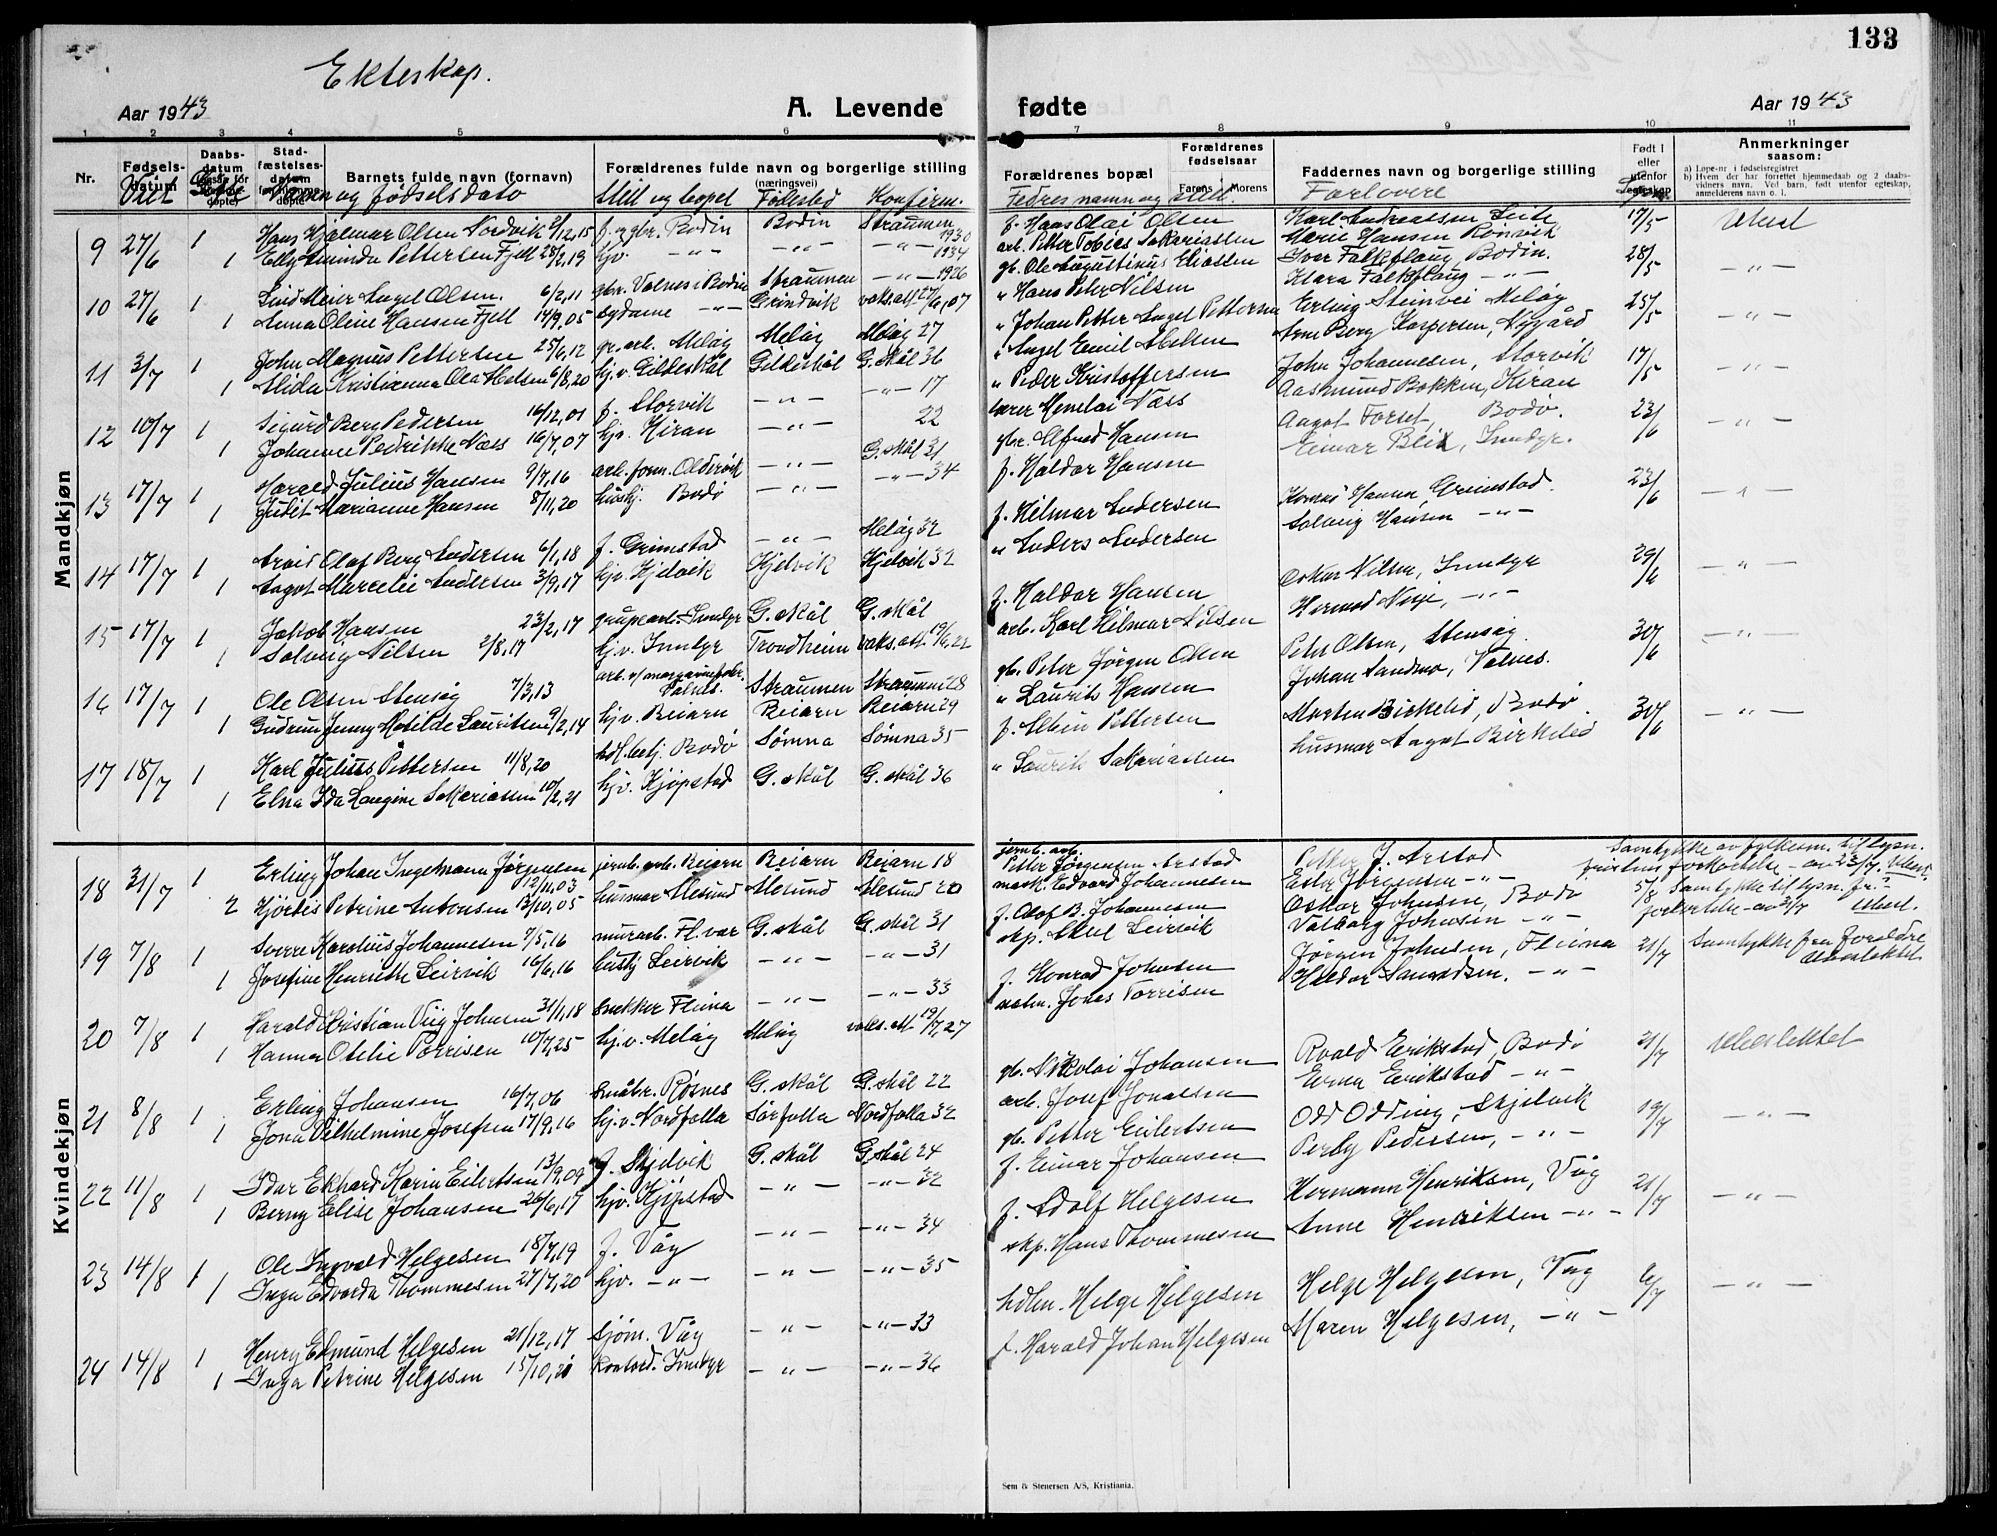 133
Ekteskap.
Aar 1943
A. Levende
fødte
Aar 1943
1 2 3 4 5 6 7 8 9 10 11
Nr.
Fødsels-
datum
Daabs-
datum
Stad-
fæstelses-
datum
Barnets fulde navn (fornavn)
Forældrenes fulde navn og borgerlige stilling
(næringsvei)
Forældrenes bopæl
Forældrenes
fødselsaar
Farens Morens
Faddernes navn og borgerlige stilling
Født i
eller
utenfor
egteskap
Anmerkninger
saasom:
a) Løpe-nr i fødselsregistret
b) Hvem der har forrettet hjemmedaab og 2 daabs-
vidners navn. Ved barn, født utenfor egteskap,
anmelderens navn o. l.
Viet
Navn og fødselsdato
Still og bopel
Fødested
Konfirm.
Fedres namn og still.
Forlovere
Mandkjøn
9 27/6 1 Hans Hjalmar Olsen Nordvik 2/12,15 f. og gbr. Bodin Bodin Straumen 1930 f. Hans Olai Olsen Karl Andreassen Seite 17/5 Utlest
1 Elly Amunda Pettersen Fjell 28/2,19 hjv. -"- -"- -"- 1934 arb. Petter Tobias Sakariassen Marie Hansen Rønvik
10 27/6 1 Leid Meier Angel Olsen. 6/2,11 gbr. Valnes i Bodin Straumen -"- 1926 gb. Ole Augustinus Eliassen Iver Falkflaug Bodin. 28/5 -"-
1 Anna Oline Hansen Fjell 14/9,05 sydame -"- Grindvik vaks.att. 27/6,07 " Hans Peter Nilsen Klara Falkflaug -"-
11 3/7 1 John Magnus Pettersen 25/6,12 gr.arb. Meløy Meløy Meløy 27 " Johan Petter Angel Pettersen Erling Steinvei Meløy 25/5 -"-
1 Alida Kristianna Ola Abelsen 6/8,20 hj.v. Gildeskål Gildeskål G. skål 36 " Angel Emil Abelsen Arne Berg Kaspersen, Nygård
12 10/7 1 Sigurd Berg Pedersen 16/12,01 f. Storvik -"- -"- 17 " Peder Kristoffersen John Johannesen, Storvik 17/5 -"-
1 Johanne Pedrikke Næss 16/7,07 hjv. Kiran -"- 22 lærer Menelai Næss Aasmund Bakken, Kiran
13 17/7 1 Harald Julius Hansen 9/7,16 arb.form. Oldervik -"- G. skål 31 gbr. Alfred Hansen Aagot Forset, Bodø. 23/6 -"-
1 Judit Marianne Hansen 8/11,20 hushj. Bodø -"- -"- 34 f. Haldor Hansen Einar Blix, Inndyr.
14 17/7 1 Arvid Olaf Berg Andersen 6/1,18 f. Grimstad -"- Meløy 32 f. Hilmar Andersen Hansen, Grimstad. 23/6 -"-
1 Aagot Marcelie Andersen 3/9,17 hjv. Kjelvik Kjelvik Kjelvik 32 " Anders Andersen Solveig Hansen -"-
15 17/7 1 Jakob Hansen 23/2,17 grupearb. Inndyr G. skål G. skål f. Haldor Hansen Oskar Nilsen, Inndyr 29/6 -"-
1 Solveig Nilsen 2/8,17 hj.v. Inndyr Trondheim vaks.att. 19/6,22 arb. Karl Hilmar Nilsen Hermod -"-
16 17/7 1 Ole Olsen Stensøy 7/3,13 Valnes. Straumen Straumen 28 gb. Peter Jørgen Olsen Peter Olsen, Stensøy. 30/6 -"-
1 Gudrun Jenny Matilde Lauritsen 9/2,14 hjv. Beiarn Beiarn Beiarn 29 " Laurits Hansen Johan Sandmo, Valnes.
17 18/7 1 Karl Julius Pettersen 11/8,20 Bodø Sømna Sømna 35 f. Albin Pettersen Morten Birkelid, Bodø. 30/6 -"-
1 Elna Ida Laugine Sakariassen 10/2,21 hjv. Kjøpstad G. skål G. skål 36 " Laurits Sakariassen husmor Aagot Birkelid
Kvindekjøn
18 31/7 1 Erling Johan Ingelmann Jørgensen 12/11,03 jernb. arb. Beiarn Beiarn Beiarn 18 jernb. arb. Petter Jørgensen Arstad Petter J. Arstad Samtykke av fylkesm. til lysn. fristens forkortelse - av 23/7. Utlest.
2 Hjørdis Petrine Antonsen 13/10,05 husmor Ålesund Ålesund Ålesund 20 mask. Edvard Johannesen Ester Jørgensen -"-
19 7/8 1 Sverre Karelius Johannesen 7/5,16 murarb. Fl.vær G. skål G. skål 31 f. Olaf B. Johannesen Oskar Johnsen, Bodø 5/8 Samtykke til lysn. fr. forkortelse - av 31/7 Utlest.
1 Josefine Henriette Leirvik 16/6,16 hushj Leirvik -"- -"- 31 skp. Skul Leirvik Valborg Johnsen -"-
20 7/8 1 Harald Kristian Viig Johnsen 31/1,18 Snekker Fleina -"- -"- 33 f. Konrad Johnsen Jørgen Johnsen, Fleina 21/7 Samtykke fra foreldre
1 Hanna Otelie Torrisen 10/7,25 hj.v. Meløy Meløy vaks.att. 19/7,27 Jonas Torrisen Haldor Samuelsen. -"-
21 8/8 1 Erling Johansen 16/7,06 Småbr. Røsnes G. skål G. skål 22 gb. Nikolai Johansen Roald Erikstad, Bodø 21/7
1 Jona Vilhelmine Josefsen 17/9,16 hj.v. Nordfolla Sørfolla Nordfolla 32 arb. Josef Jonassen Erna Erikstad -"-
22 11/8 1 Idar Ekhard Karin Eilertsen 13/9,09 f. Skjelvik G. skål G. skål 24 gb. Petter Eilertsen Odd Odding, Skjelvik 19/7 -"-
1 Berny Elise Johansen 26/6,17 hjv. Kjøpstad -"- -"- 32 f. Einar Johansen Perly Pedersen, -"-
23 14/8 1 Ole Ingvald Helgesen 18/7,19 f. Våg -"- -"- 34 f. Adolf Helgesen Hermann Henriksen, Våg 21/7 -"-
1 Inga Edvarda Thommesen 27/7,20 hjv. -"- -"- -"- 35 skp. Hans Thommesen Anne Henriksen -"-
24 14/8 1 Henry Edmund Helgesen 21/12,17 Sjøm. Våg -"- -"- 33 hdlm. Helge Helgesen Helge Helgesen, Våg 6/7 -"-
1 Inga Petrine Helgesen 15/10,20 kontord. Inndyr -"- -"- 36 f. Harald Johan Helgesen Maren Helgesen, -"-
Sem & Stenersen A/S, Kristiania.